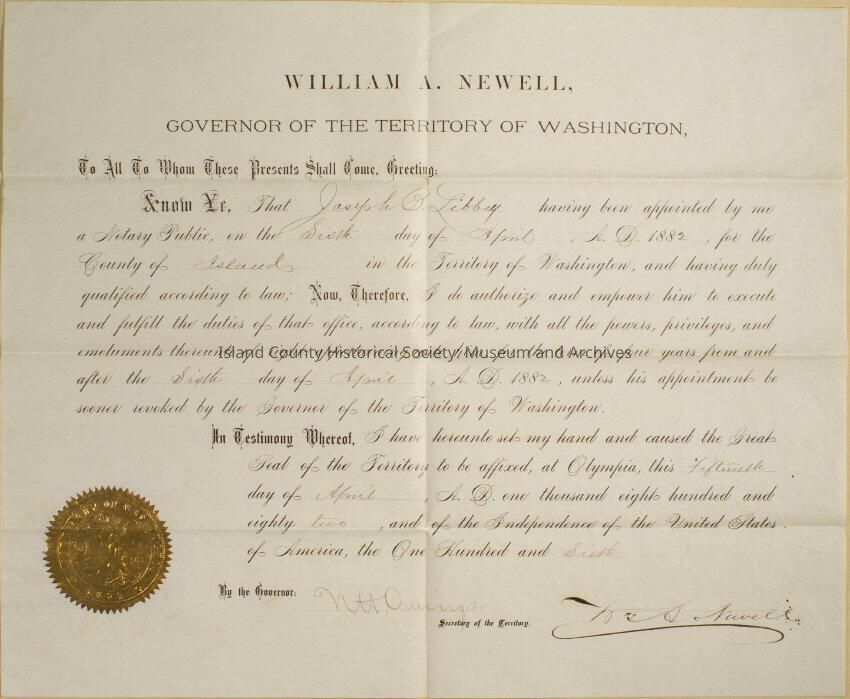 WILLIAM A. NEWELL,
GOVERNOR OF THE TERRITORY OF WASHINGTON,
To All To Whom These Presents Shall Come, Greeting:
Know Ye, That Joseph B. Libbey having been appointed by me
a Notary Public, on the Sixth day of April, A. D. 1882, for the
County of Island in the Territory of Washington, and having duly
qualified according to law; Now, Therefore, I do authorize and empower him to execute
and fulfill the duties of that office, according to law, with all the powers, privileges, and
emoluments thereunto
Island County Historical Society, Museum and Archives
four years from and
after the Sixth day of April, A. D. 1882, unless his appointment be
sooner revoked by the Governor of the Territory of Washington.
In Testimony Whereof, I have hereunto set my hand and caused the Great
Seal of the Territory to be affixed, at Olympia, this Fifteenth
day of April, A. D. one thousand eight hundred and
eighty two, and of the Independence of the United States
of America, the One Hundred and Sixth.
By the Governor:
N. H. Owings.
Secretary of the Territory.
Wm A Newell